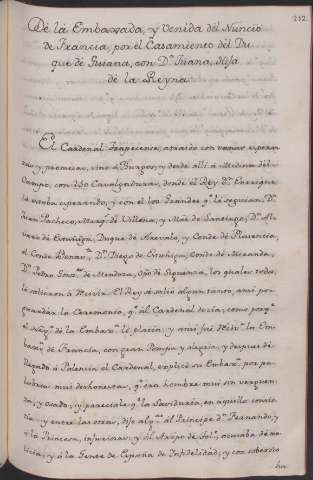 212.
De la Embaxada, y Venida del Nuncio
de Francia, por el Casamiento del Du
que de Guiana, con Dª Juana, Hija
de la Reyna
El Cardenal Atrapecense, atraido con vanas esperan
zas, y promesas, vino à Burgos, y desde alli à Medina del
Campo, con 250 Cavalgaduras, donde el Rey Dn Enrrique
le estaba esperando, y con el los Grandes qe le seguian, Dn
Juan Pacheco, Marqs de Villena, y Mre de Santiago, Dn Al
varo de Estuñiga, Duque de Arevalo, y Conde de Plasencia,
el Conde de Benavte, Dn Diego de Estuñiga, Conde de Miranda,
Dn Pedro Gonzz de Mendoza, Opo de Siguenza, los quales todos
le salieron à Recivir. El Rey se salió algun tanto, ansi por
guardar la Ceremonia, qe al Cardenal devia, como porqe
el Negº de la Embaxda le placia; y ansi fue Recivda la Em
baxda de Francia, con gran Pompa y alegria, y despues de
llegado à Palacio el Cardenal, explicó su Embaxda por pa
labras mui deshonestas, qe era hombre mui sin verguen
za, y osado, y pareciale qe la Saviduria, en aquello consis
tia; y entre las otras, dijo algas al Principe Dn Fernando, y
à la Princesa, injuriosas, y al Arzpo de Tolº, acusaba de ma
licia, y à la Gente de España de Infidelidad, y con sobervio
ha